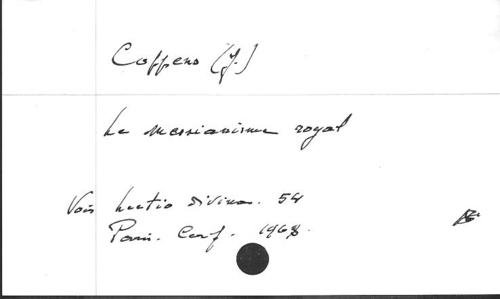 Coppens (J.)
Le messianisme royal
Voir Lectio divina. 54
Paris. Cerf. 1968.